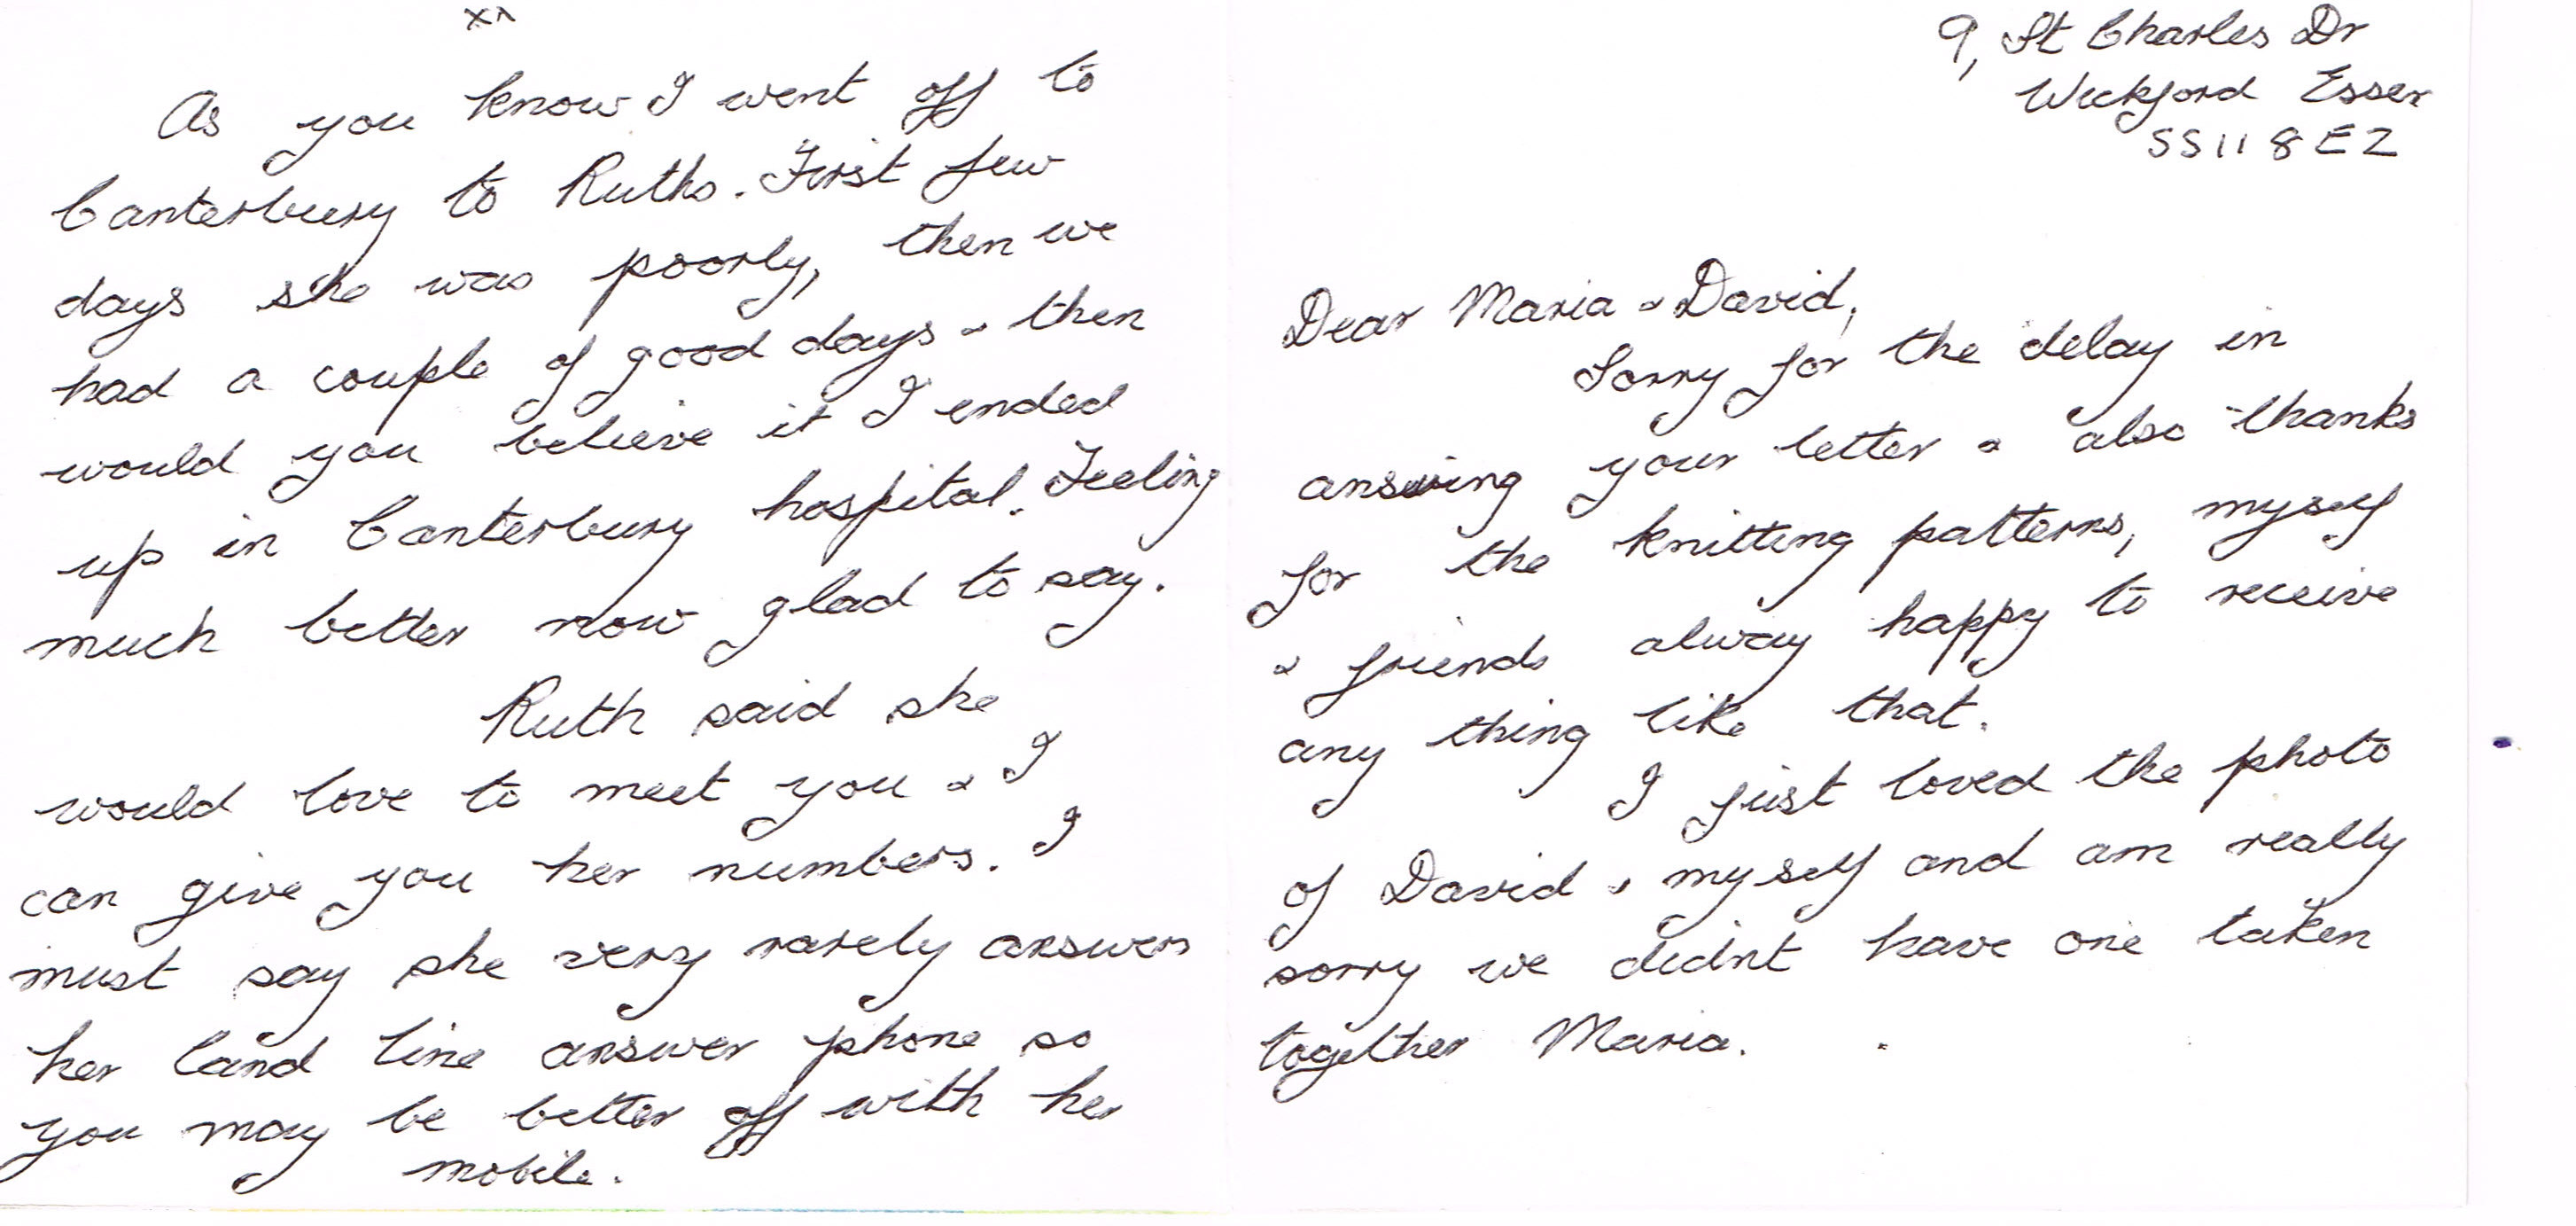 9, St Charles Dr
Wickford Essex
SS11 8EZ
Dear Maria & David,
Sorry for the delay in
answing your letter & also thanks
for the knitting patterns, myself
& friends alway happy to receive
any thing like that.
I just loved the photo
of David & myself and am really
sorry we didn't have one taken
together Maria.
As you know I went off to
Canterbury to Ruths. First few
days she was poorly, then we
had a couple of good days & then
would you believe it I ended
up in Canterbury hospital. Feeling
much better now glad to say.
Ruth said she
would love to meet you & I
can give you her numbers. I
must say she very rarely answers
her land line answer phone so
you may be better off with her
mobile.